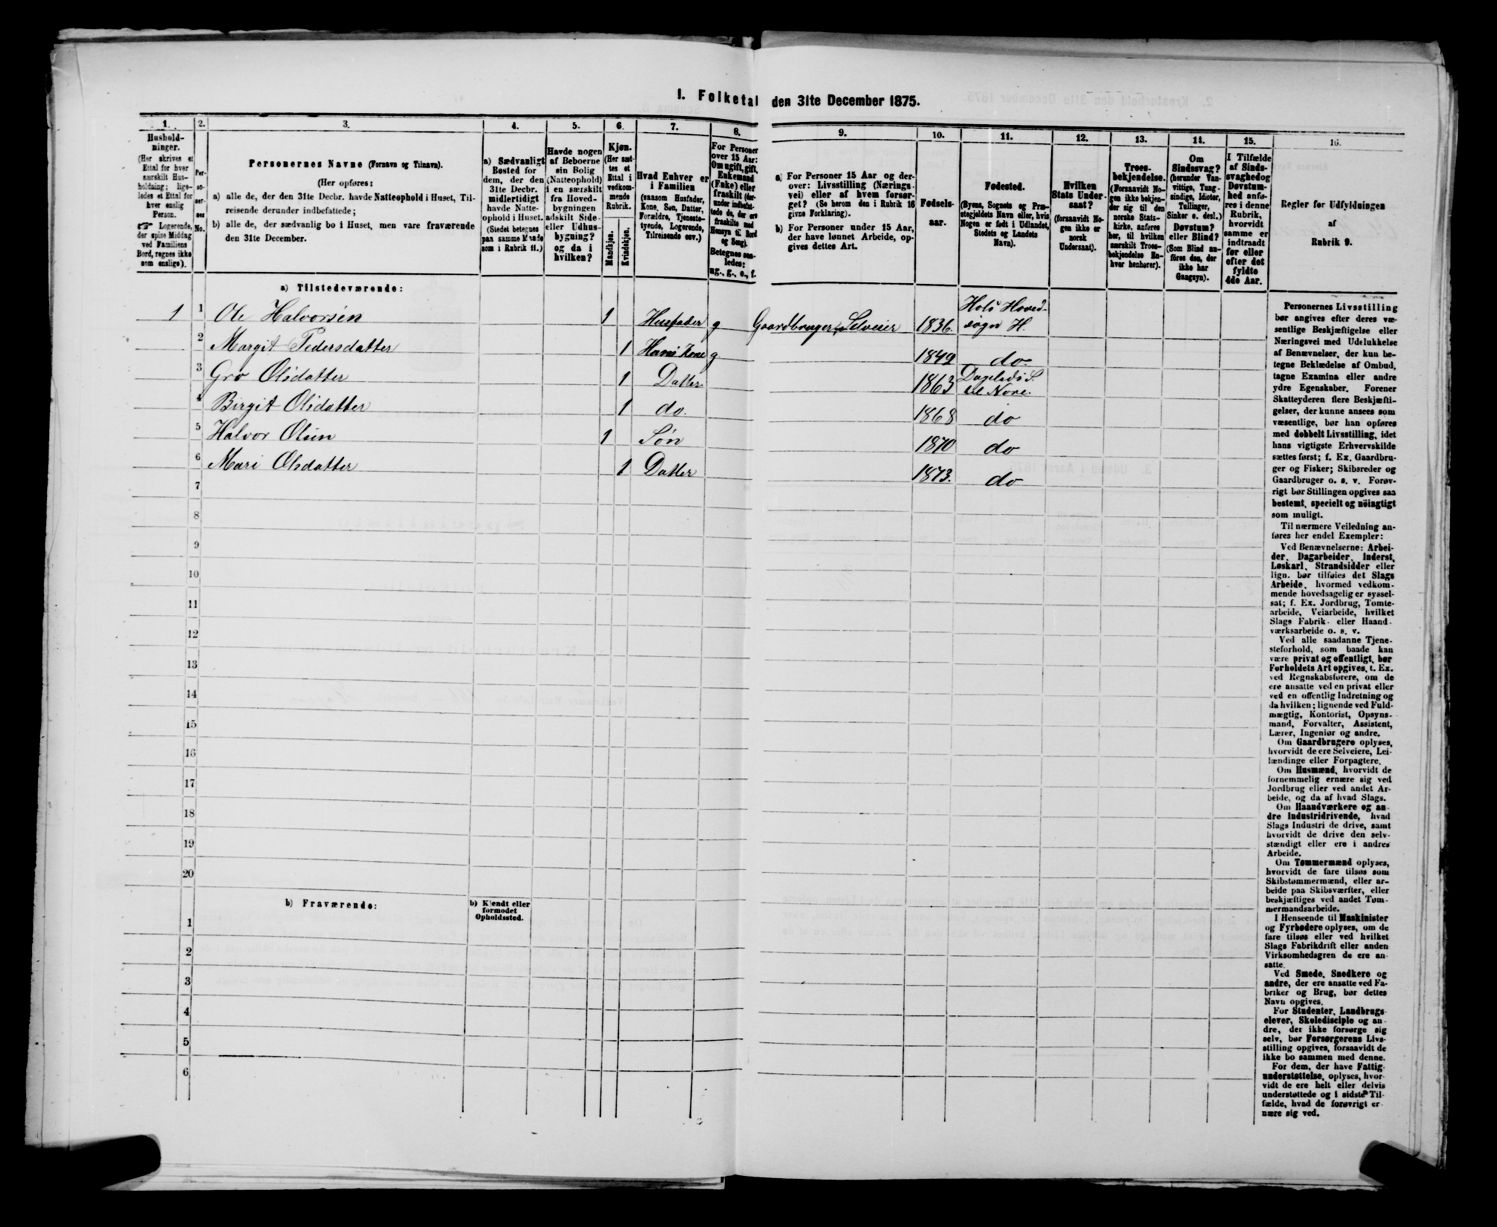 1. Folketal den 31te December 1875.
1.
2.
3.
4.
5.
6.
7.
8.
9.
10.
11.
12.
13.
14.
15.
16.
Hushold-
ninger.
(Her skrives et
Ettal for hver
særskilt Hus-
holdning; lige-
ledes et Ettal for
hver enslig
Person.
☞ Logerende,
der spise Middag
ved Familiens
Bord, regnes ikke
som enslige).
Per-
so-
ner-
nes
No.
Personernes Navne (Fornavn og Tilnavn).
(Her opføres:
a) alle de, der den 31te Decbr. havde Natteophold i Huset, Til-
reisende derunder indbefattede;
b) alle de, der sædvanlig bo i Huset, men vare fraværende
den 31te December.
a) Sædvanligt
Bosted for
dem, der den
31te Decbr.
midlertidigt
havde Natte-
ophold i Huset.
(Stedet betegnes
paa samme Maade
som i Rubrik 11.)
Havde nogen
af Beboerne
sin Bolig
(Natteophold)
i en særskilt
fra Hoved-
bygningen
adskilt Side-
eller Udhus-
bygning?
og da i
hvilken?
Kjøn.
(Her sæt-
tes et
Ettal i
vedkom-
mende
Rubrik.
Mandkjøn.
Kvindekjøn.
Hvad Enhver er
i Familien
(saasom Husfader,
Kone, Søn, Datter,
Forældre, Tjeneste-
tyende, Logerende,
Tilreisende osv.)
For Personer
over 15 Aar:
Om ugift, gift,
Enkemand
(Enke) eller
fraskilt (der-
under indbefat-
tede de, der ere
fraskilte med
Hensyn til Bord
og Seng).
Betegnes saa-
ledes:
ug., g., e., f.
a) For Personer 15 Aar og der-
over: Livsstilling (Nærings-
vei) eller af hvem forsør-
get? (Se herom den i Rubrik 16
givne Forklaring).
b) For Personer under 15 Aar,
der have lønnet Arbeide, op-
gives dettes Art.
Fødsels-
aar.
Fødested.
(Byens, Sognets og Præ-
stegjeldets Navn eller, hvis
Nogen er født i Udlandet,
Stedets og Landets
Navn).
Hvilken
Stats Under-
saat?
(forsaavidt No-
gen ikke er
norsk
Undersaat).
Troes-
bekjendelse.
(Forsaavidt No-
gen ikke bekjen-
der sig til den
norske Stats-
kirke, anføres
her, til hvilken
særskilt Troes-
bekjendelse En-
hver henhører).
Om
Sindssvag?
(herunder Van-
vittige, Tung-
sindige, Idioter,
Tullinger,
Sinker o. desl.)
Døvstum?
eller Blind?
(Som Blind an-
føres den, der
ikke har
Gangsyn).
I Tilfælde
af Sinds-
svaghed og
Døvstum-
hed anfø-
res i denne
Rubrik,
hvorvidt
samme er
indtraadt
før eller
efter det
fyldte
4de Aar.
Regler før Udfyldningen
af
Rubrik 9.
a) Tilstedeværende:
1 1 Ole Halvorsen 1 Husfader g Gaardbruger, Selveier 1836. Hols Hoved-
sogn H.
2 Margit Pedersdatter 1 Hans Kone g 1842 do.
3 Gro Olsdatter 1 Datter 1863 Dagalids S.
til Nore.
4 Birgit Olsdatter 1 do. 1868 do
5 Halvor Olsen 1 Søn 1870 do
6 Mari Olsdatter 1 Datter 1873. do
7
8
9
10
11
12
13
14
15
16
17
18
19
20
b) Fraværende:
b) Kjendt eller
formodet
Opholdssted.
1
2
3
4
5
6
Personernes Livsstilling
bør angives efter deres væ-
sentlige Beskjæftigelse eller
Næringsvei med Udelukkelse
af Benævnelser, der kun be-
tegne Beklædelse af Ombud,
tagne Examina eller andre
ydre Egenskaber. Forener
Skatteyderen flere Beskjæfti-
gelser, der kunne ansees som
væsentlige, bør han opføres
med dobbelt Livsstilling, idet
hans vigtigste Erhvervskilde
sættes først; f. Ex. Gaardbru-
ger og Fisker; Skibsreder og
Gaardbruger o. s. v. Forøv-
rigt bør Stillingen opgives saa
bestemt, specielt og nøiagtigt
som muligt.
Til nærmere Veiledning an-
føres her endel Exempler:
Ved Benævnelserne: Arbei-
der, Dagarbeider, Inderst,
Løskarl, Strandsidder eller
lign. bør tilføies det Slags
Arbeide, hvormed vedkom-
mende hovedsagelig er syssel-
sat; f. Ex. Jordbrug, Tomte-
arbeide, Veiarbeide, hvilket
Slags Fabrik- eller Haand-
værksarbeide o. s. v.
Ved alle saadanne Tjene-
steforhold, som baade kan
være privat og offentligt, bør
Forholdets Art opgives, t. Ex.
ved Regnskabsførere, om de
ere ansatte ved en privat eller
ved en offentlig Indretning og
da hvilken; lignende ved Fuld-
mægtig, Kontorist, Opsyns-
mand, Forvalter, Assistent,
Lærer, Ingeniør og andre.
Om Gaardbrugere oplyses,
hvorvidt de ere Selveiere, Lei-
lændinge eller Forpagtere.
Om Husmænd, hvorvidt de
fornemmelig ernære sig ved
Jordbrug eller ved andet Ar-
beide, og da af hvad Slags.
Om Haandværkere og an-
dre Industridrivende, hvad
Slags Industri de drive, samt
hvorvidt de drive den selv-
stændigt eller ere i andres
Arbeide.
Om Tømmermænd oplyses,
hvorvidt de fare tilsøs som
Skibstømmermænd, eller ar-
beide paa Skibsværfter, eller
beskjæftiges ved andet Tøm-
mermandsarbeide.
I Henseende til Maskinister
og Fyrbødere oplyses, om de
fare tilsøs eller ved hvilket
Slags Fabrikdrift eller anden
Virksomhedsgren de ere an-
satte.
Ved Smede, Snedkere og
andre, der ere ansatte ved Fa-
briker og Brug, bør dettes
Navn opgives.
For Studenter, Landbrugs-
elever, Skoledisciple og an-
dre, der ikke forsørge sig
selv, bør Forsørgerens Livs-
stilling opgives, forsaavidt de
ikke bo sammen med denne.
For dem, der have Fattig-
understøttelse, oplyses, hvor-
vidt de ere helt eller delvis
understøttede og i sidste Til-
fælde, hvad de forøvrigt er-
nære sig ved.